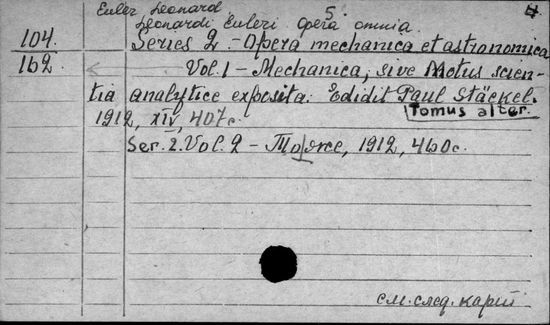 Euler Leonard 5.
Leonardi Euleri Opera omnia.
104. Series 2. - Opera mechanica et astronomica
162. Vol. 1 - Mechanica, sive Motus scien-
tia analytice exposita. Edidit Paul Stäckel.
1912, XIV, 407c. Tomus alter.
Ser. 2. Vol. 2 - То же, 1912, 460c.
см. след. карт